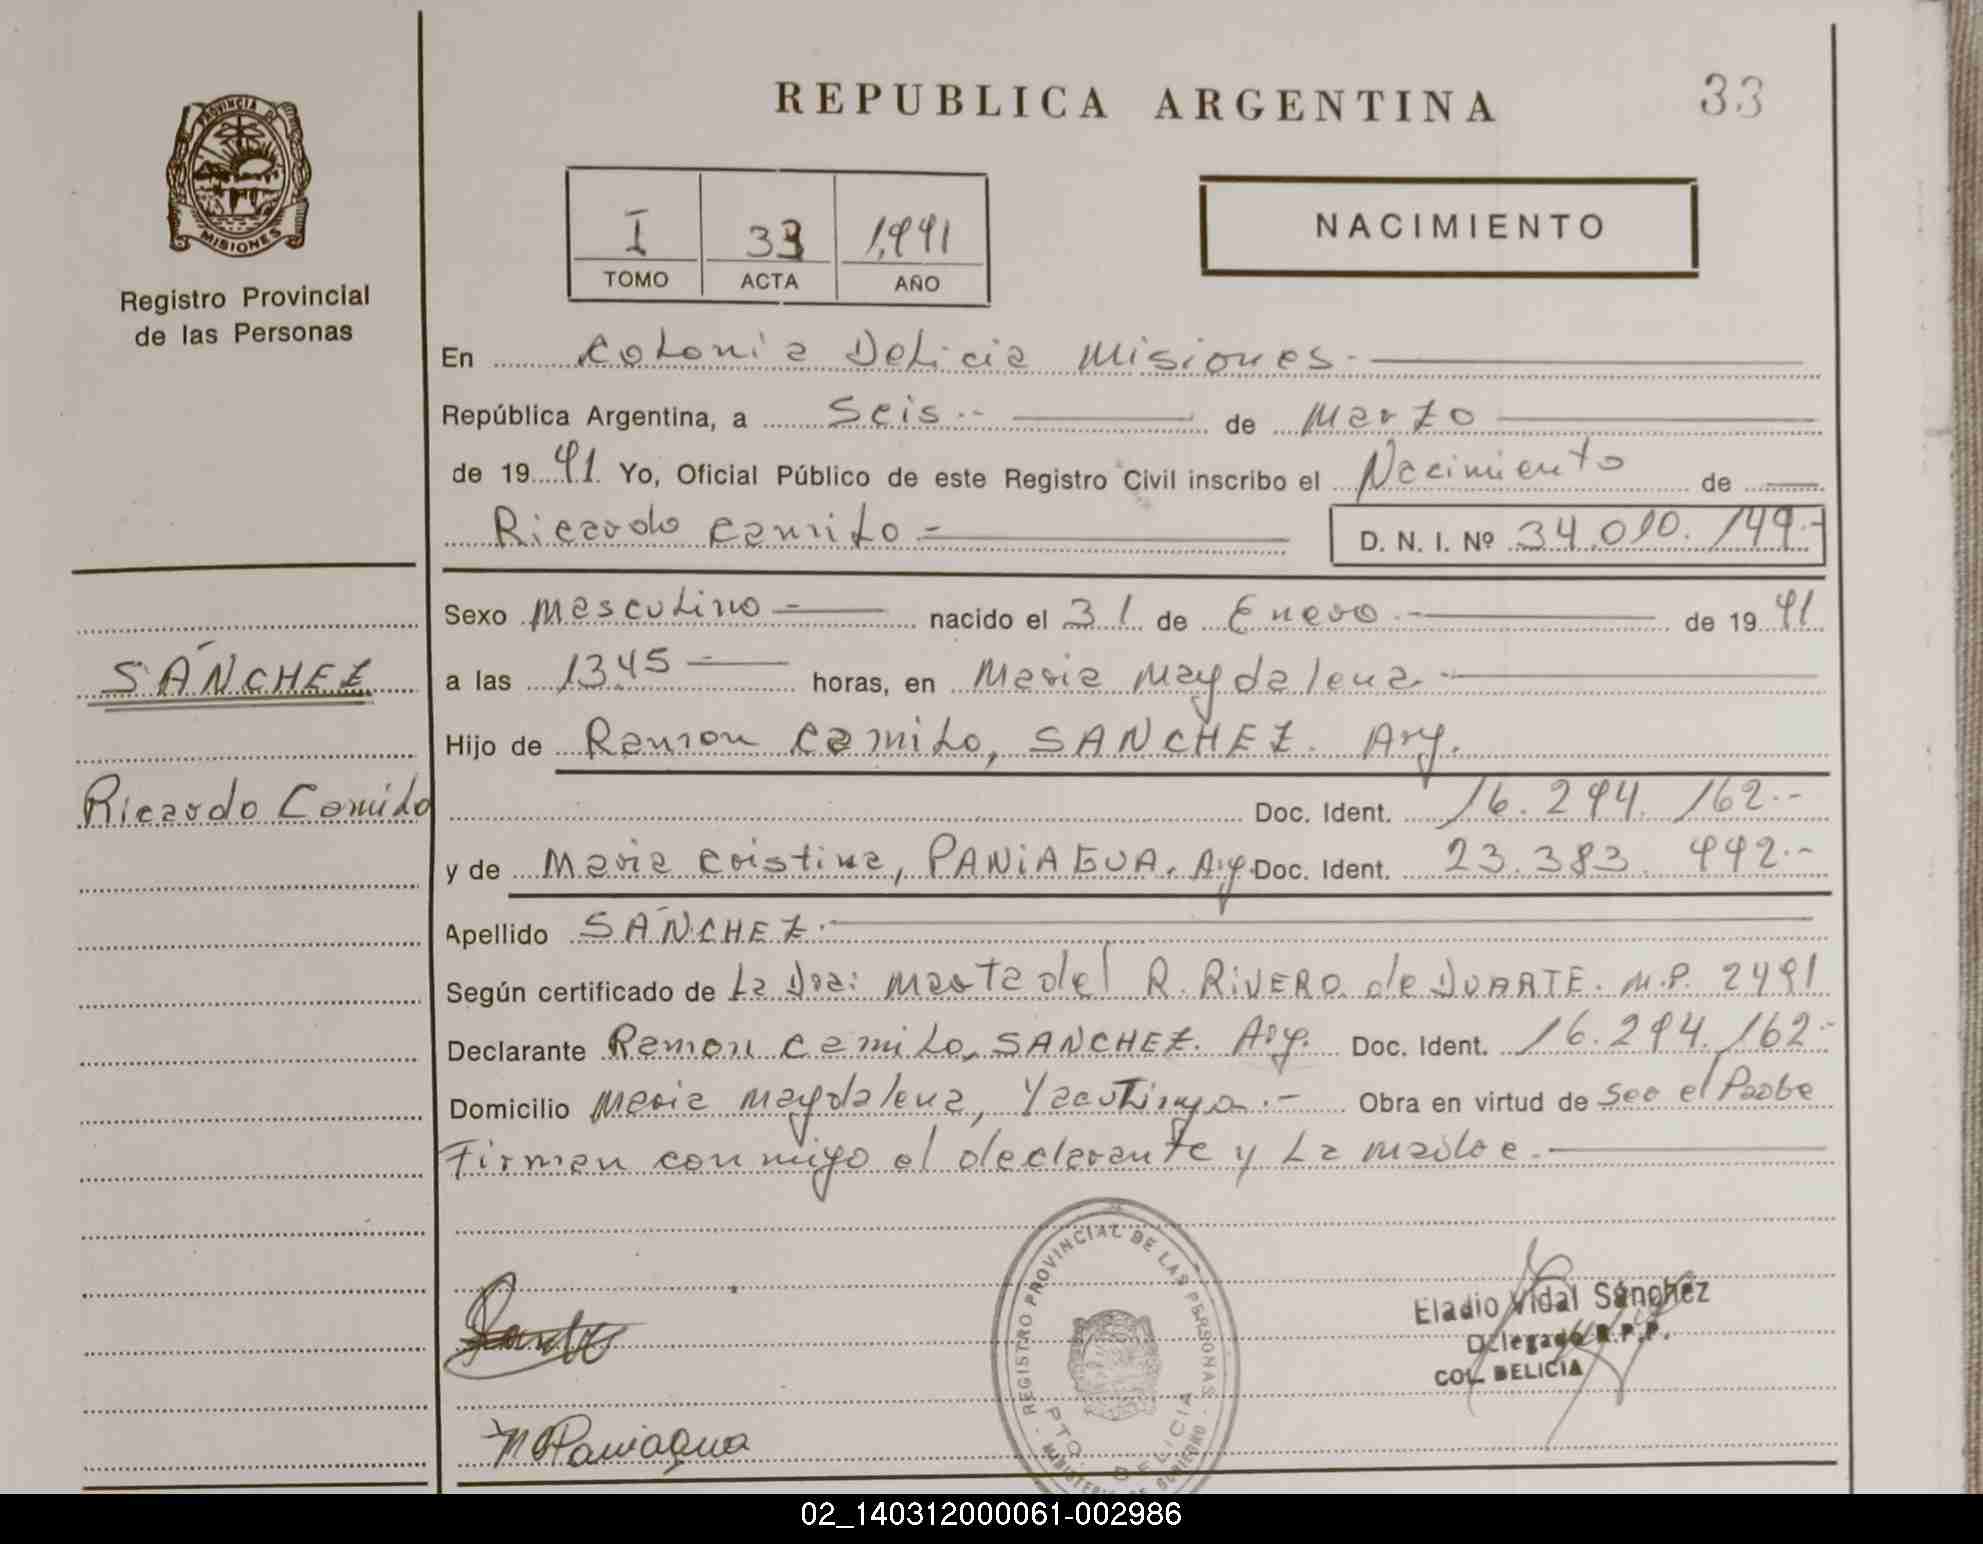 REPUBLICA ARGENTINA
33
PROVINCIA DE
MISIONES
Registro Provincial
de las Personas
I 33 1.991
TOMO ACTA AÑO
NACIMIENTO
En Colonia Delicia Misiones.-
República Argentina, a Seis.-- de Marzo
de 19 91 Yo, Oficial Público de este Registro Civil inscribo el Nacimiento de
Ricardo Camilo - D. N. I. Nº 34.010.149.-
Sexo Masculino - nacido el 31 de Enero.- de 19 91
SÁNCHEZ
a las 13,45 - horas, en Maria Magdalena.-
Hijo de Ramon Camilo, SANCHEZ. Arg.
Ricardo Camilo
Doc. Ident. 16.294.162.-
y de Maria Cristina, PANIAGUA. Arg. Doc. Ident. 23.383.992.-
Apellido SÁNCHEZ.-
Según certificado de La Dra: Marta del R. RIVERO de DUARTE. M.P. 2491
Declarante Ramon Camilo, SANCHEZ. Arg. Doc. Ident. 16.294.162.-
Domicilio Maria Magdalena, Yacutinga.- Obra en virtud de ser el Padre
Firman conmigo el declarante y La madre.-
REGISTRO PROVINCIAL DE LAS PERSONAS
PTO. DELICIA
MINISTERIO DE GOBIERNO
Eladio Vidal Sánchez
Delegado R.P.P.
COL. DELICIA
Paniagua
02_140312000061-002986